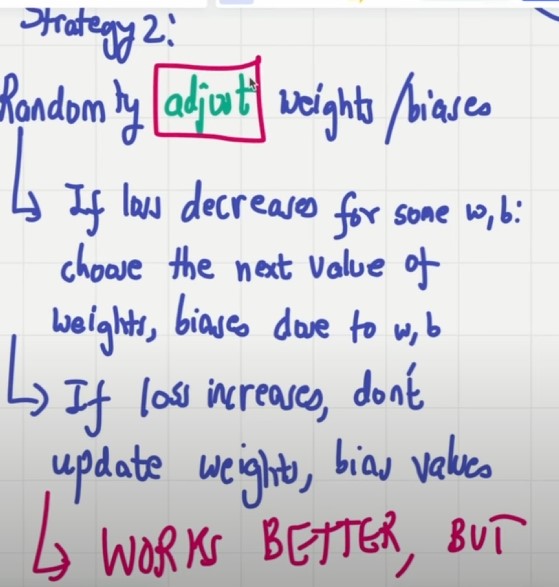 Strategy 2:
Randomly adjust weights/biases
If loss decreases for some w,b:
choose the next value of
weights, biases close to w,b
If loss increases, don't
update weights, bias values
WORKS BETTER, BUT